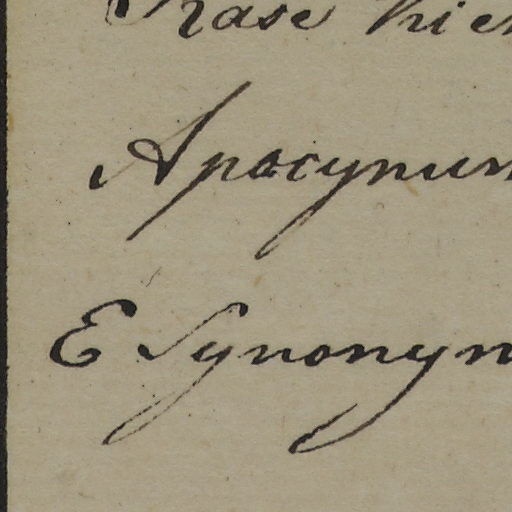 Rase hier
Apocynum
E Synonym